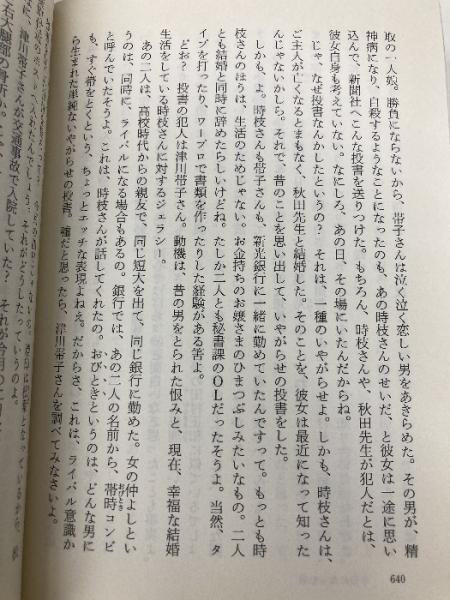 取の一人娘。勝負にならないから、帯子さんは泣く泣く恋しい男をあきらめた。その男が、精
神病になり、自殺するようなことになったのも、あの時枝さんのせいだ、と彼女は一途に思い
込んで、新聞社へこんな投書を送りつけた。もちろん、時枝さんや、秋田先生が犯人だとは、
彼女自身も考えていない。なにしろ、あの日、その場にいたんだからね。
じゃ、なぜ投書なんかしたというの? それは、一種のいやがらせよ。しかも、時枝さんは、
ご主人が亡くなるとまもなく、秋田先生と結婚した。そのことを、彼女は最近になって知った
んじゃないかしら。それで、昔のことを思い出して、いやがらせの投書をした。
しかも、よ。時枝さんも帯子さんも、新光銀行に一緒に勤めていたんですって。もっとも時
枝さんのほうは、生活のためじゃない。お金持ちのお嬢さまのひまつぶしみたいなもの。二人
とも結婚と同時に辞めたらしいけどね。たしか二人とも秘書課のOLだったそうよ。当然、タ
イプを打ったり、ワープロで書類を作ったりした経験がある筈よ。
どお? 投書の犯人は津川帯子さん。動機は、昔の男をとられた恨みと、現在、幸福な結婚
生活をしている時枝さんに対するジェラシー。
あの二人は、高校時代からの親友で、同じ短大を出て、同じ銀行に勤めた。女の仲よしとい
うのは、同時に、ライバルになる場合もあるの。銀行では、あの二人の名前から、帯時コンビ
おびとき
と呼んでいたそうよ。これは、時枝さんが話してくれたの。おびときというのは、どんな男に
も、すぐ帯をとくという、ちょっとエッチな表現よねえ。だからさ、これは、ライバル意識か
ら生まれた単純ないやがらせの投書。嘘だと思ったら、津川帯子さんを調べてみなさいよ。
640
に、津川帯子さんが交通事故で入院していた?